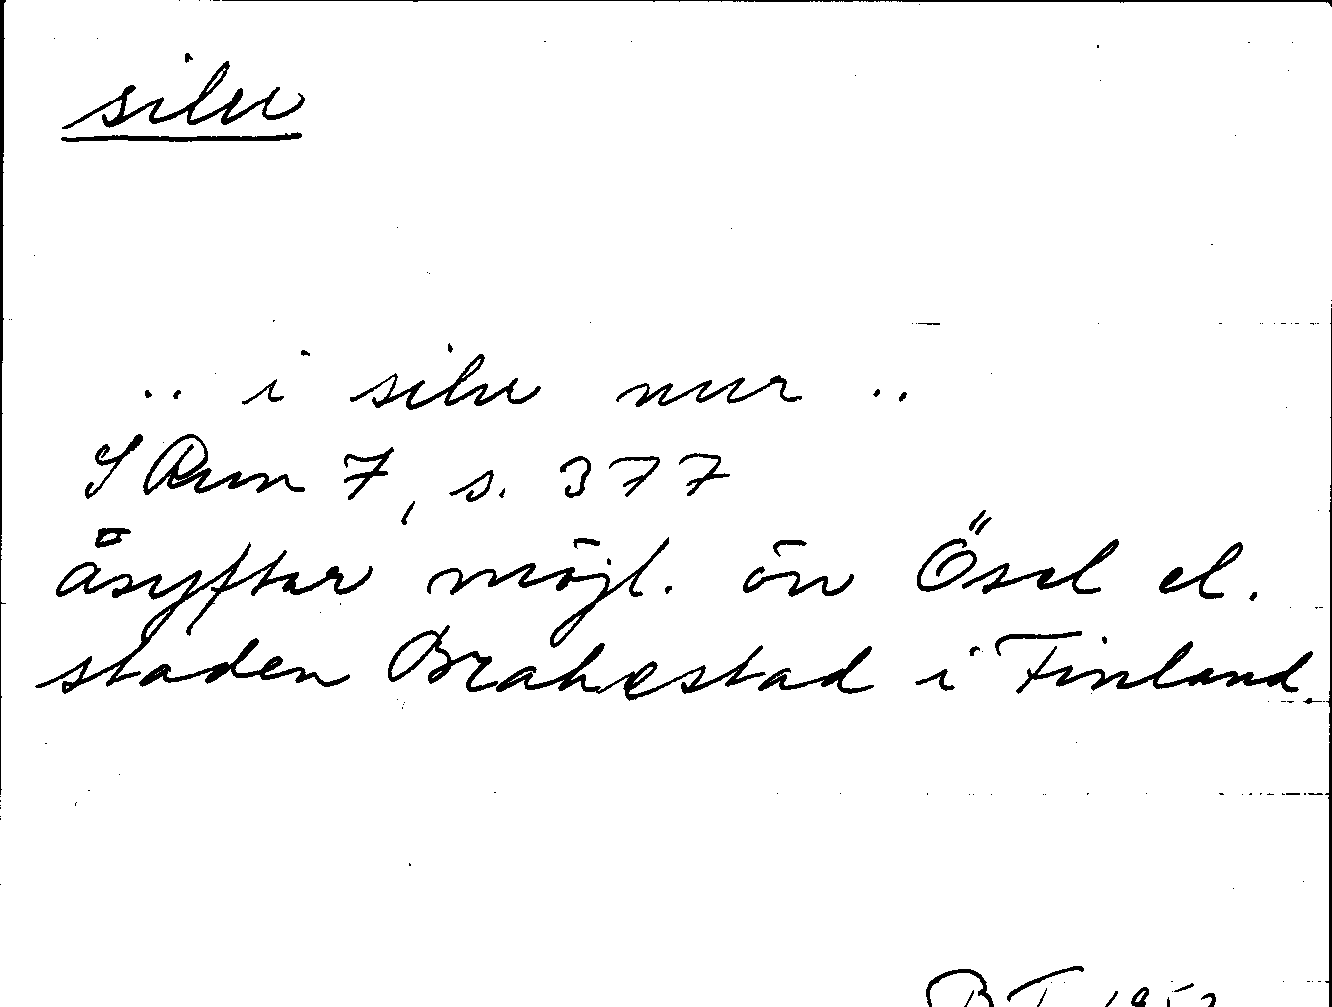 silu
.. i silu nur ..
S Run 7, s. 377
åsyftar möjl. ön Ösel el.
staden Brahestad i Finland.